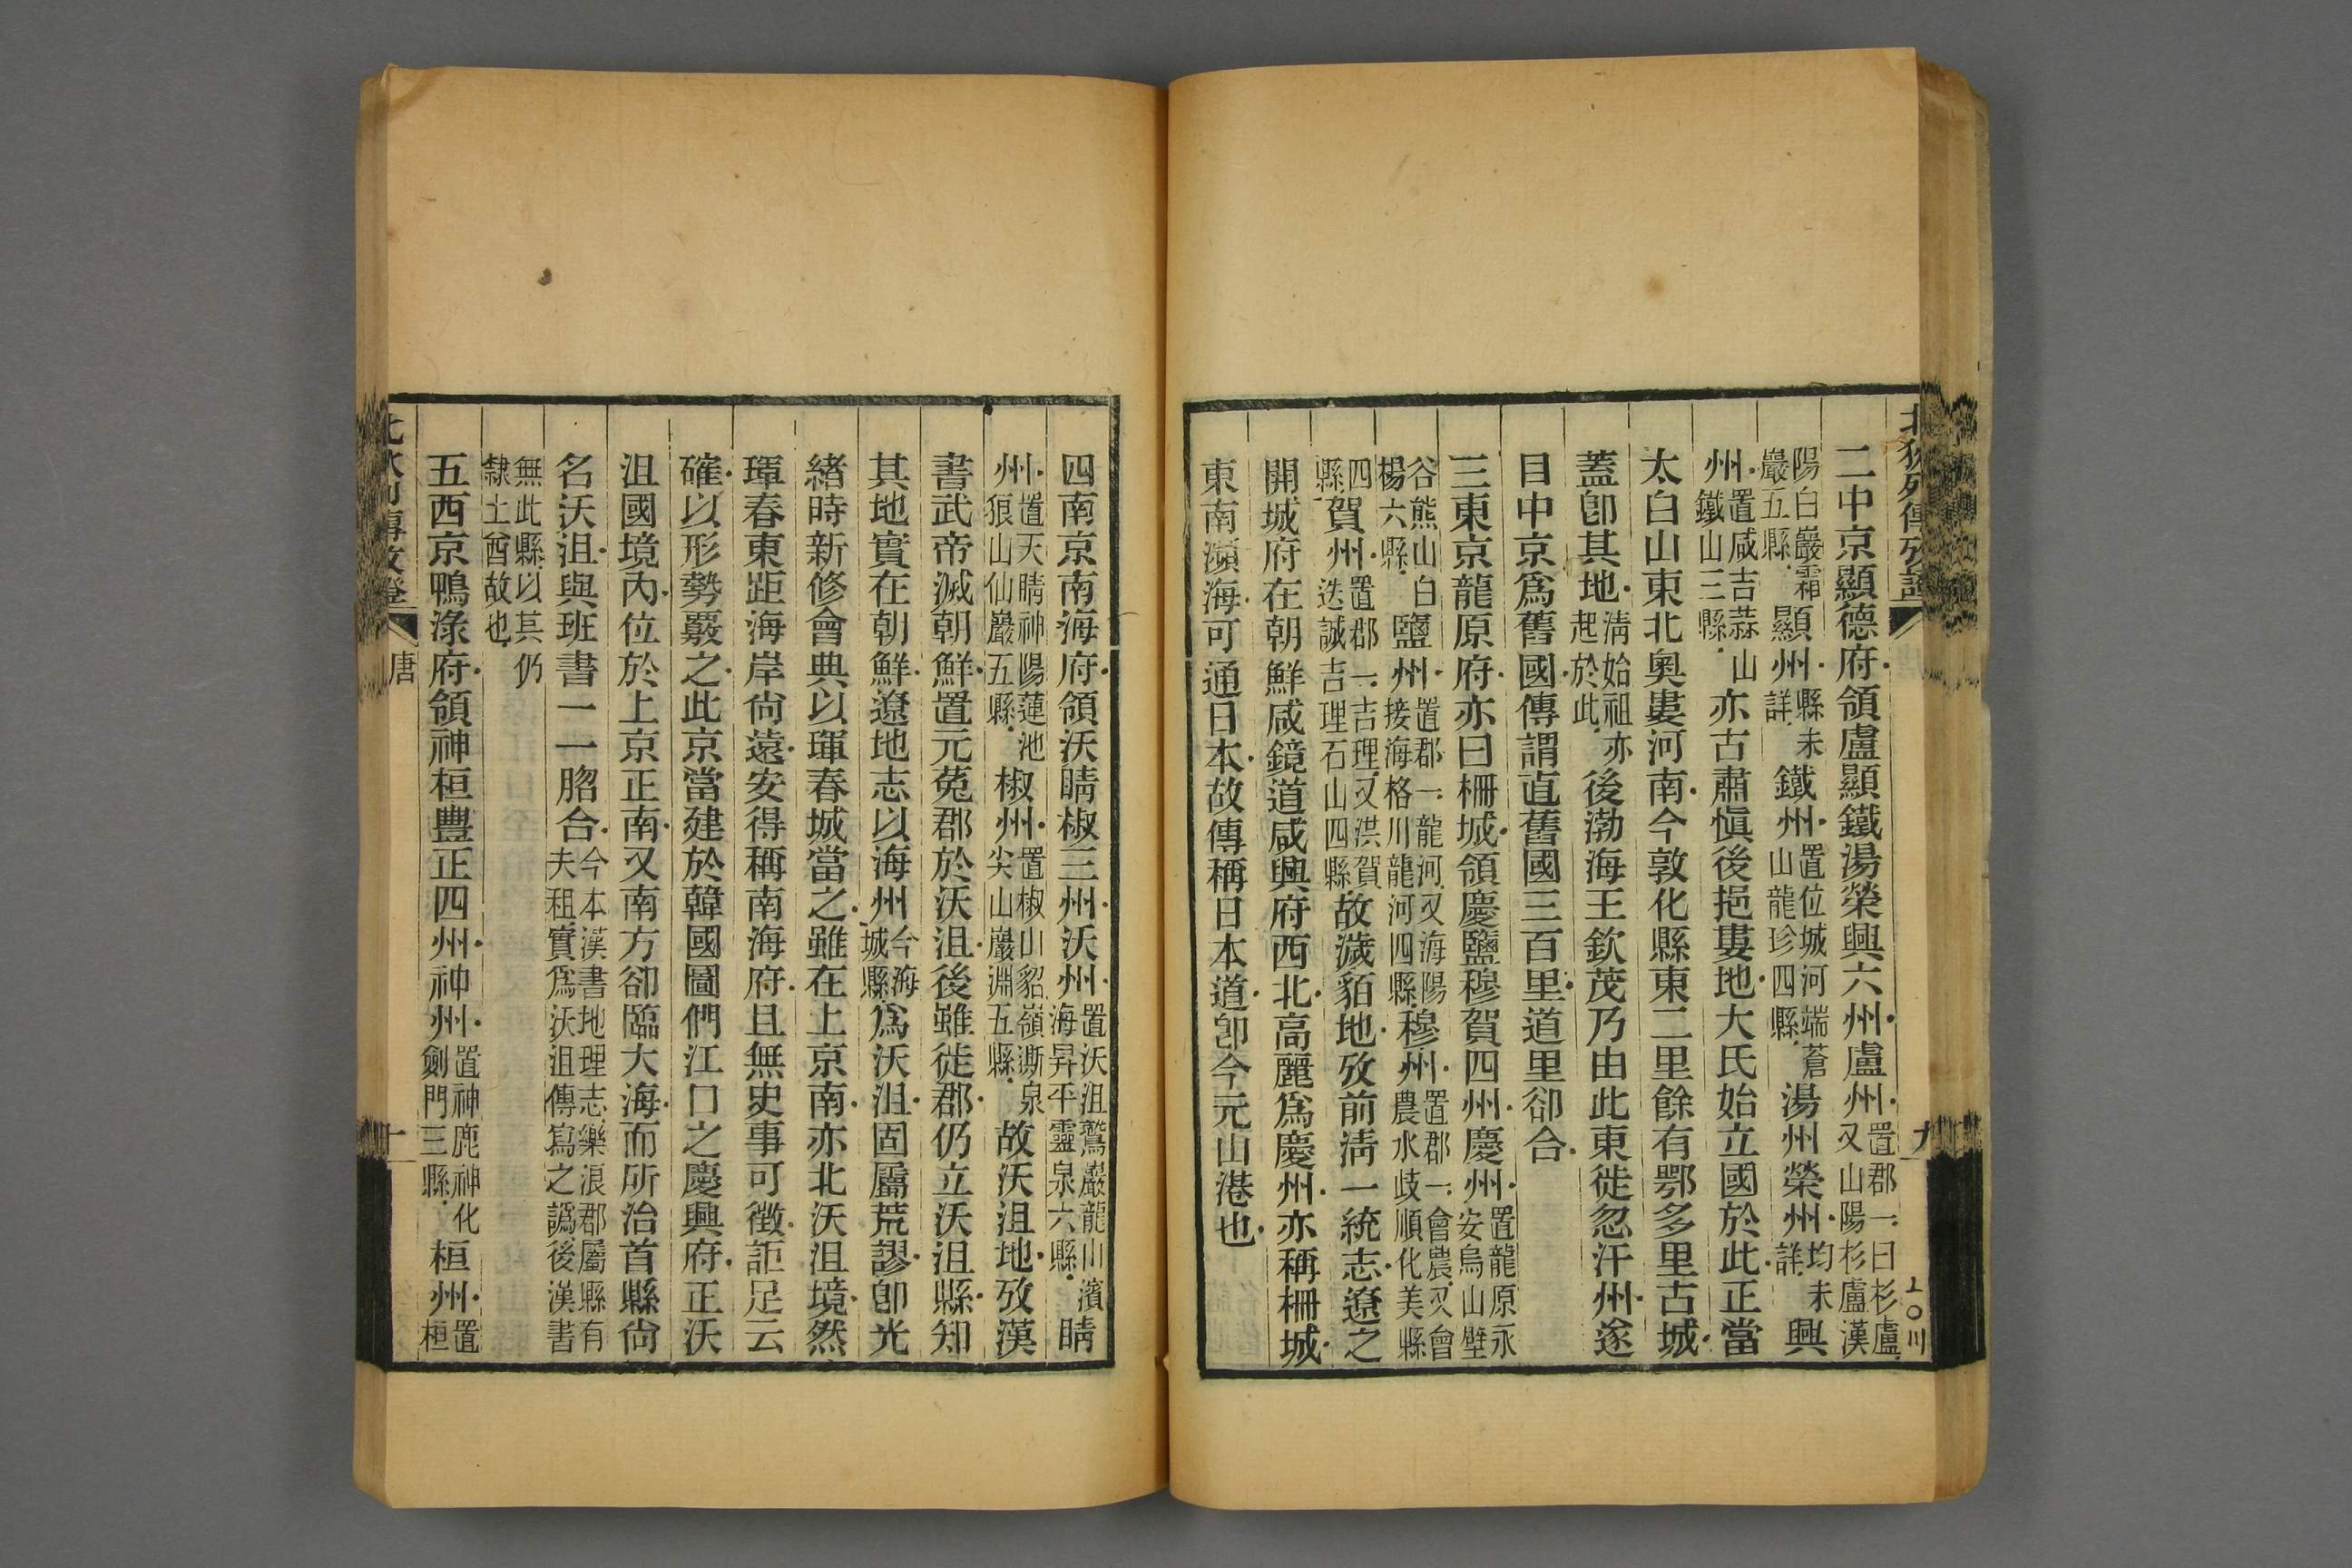 二中京顯德府領盧顯鐵湯榮興六州盧州置郡一曰杉盧又山陽杉盧漢
陽白巖霜巖五縣顯州縣未詳鐵州置位城河端蒼山龍珍四縣湯州榮州均未詳興
州置咸吉蒜山鐵山三縣亦古肅愼後挹婁地大氏始立國於此正當
太白山東北奧婁河南今敦化縣東二里餘有鄂多里古城
蓋卽其地淸始祖亦起於此後渤海王欽茂乃由此東徙忽汗州遂
目中京爲舊國傳謂直舊國三百里道里卻合
三東京龍原府亦曰柵城領慶鹽穆賀四州慶州置龍原永安烏山壁
谷熊山白楊六縣鹽州置郡一龍河又海陽接海格川龍河四縣穆州置郡一會農又會農水歧順化美縣
四縣賀州置郡一吉理又洪賀迭誠吉理石山四縣故濊貊地攷前淸一統志遼之
開城府在朝鮮咸鏡道咸興府西北高麗爲慶州亦稱柵城
東南瀕海可通日本故傳稱日本道卽今元山港也
四南京南海府領沃睛椒三州沃州置沃沮鷲巖龍山濱海昇平靈泉六縣睛
州置天睛神陽蓮池狼山仙巖五縣椒州置椒山貂嶺澌泉尖山巖淵五縣故沃沮地攷漢
書武帝滅朝鮮置元菟郡於沃沮後雖徙郡仍立沃沮縣知
其地實在朝鮮遼地志以海州今海城縣爲沃沮固屬荒謬卽光
緖時新修會典以琿春城當之雖在上京南亦北沃沮境然
琿春東距海岸尙遠安得稱南海府且無史事可徵詎足云
確以形勢覈之此京當建於韓國圖們江口之慶興府正沃
沮國境內位於上京正南又南方卻臨大海而所治首縣尙
名沃沮與班書一一脗合今本漢書地理志樂浪郡屬縣有夫租實爲沃沮傳寫之譌後漢書
無此縣以其仍隸土酋故也
五西京鴨淥府領神桓豐正四州神州置神鹿神化劍門三縣桓州置桓
北狄列傳攷證
九
唐
十